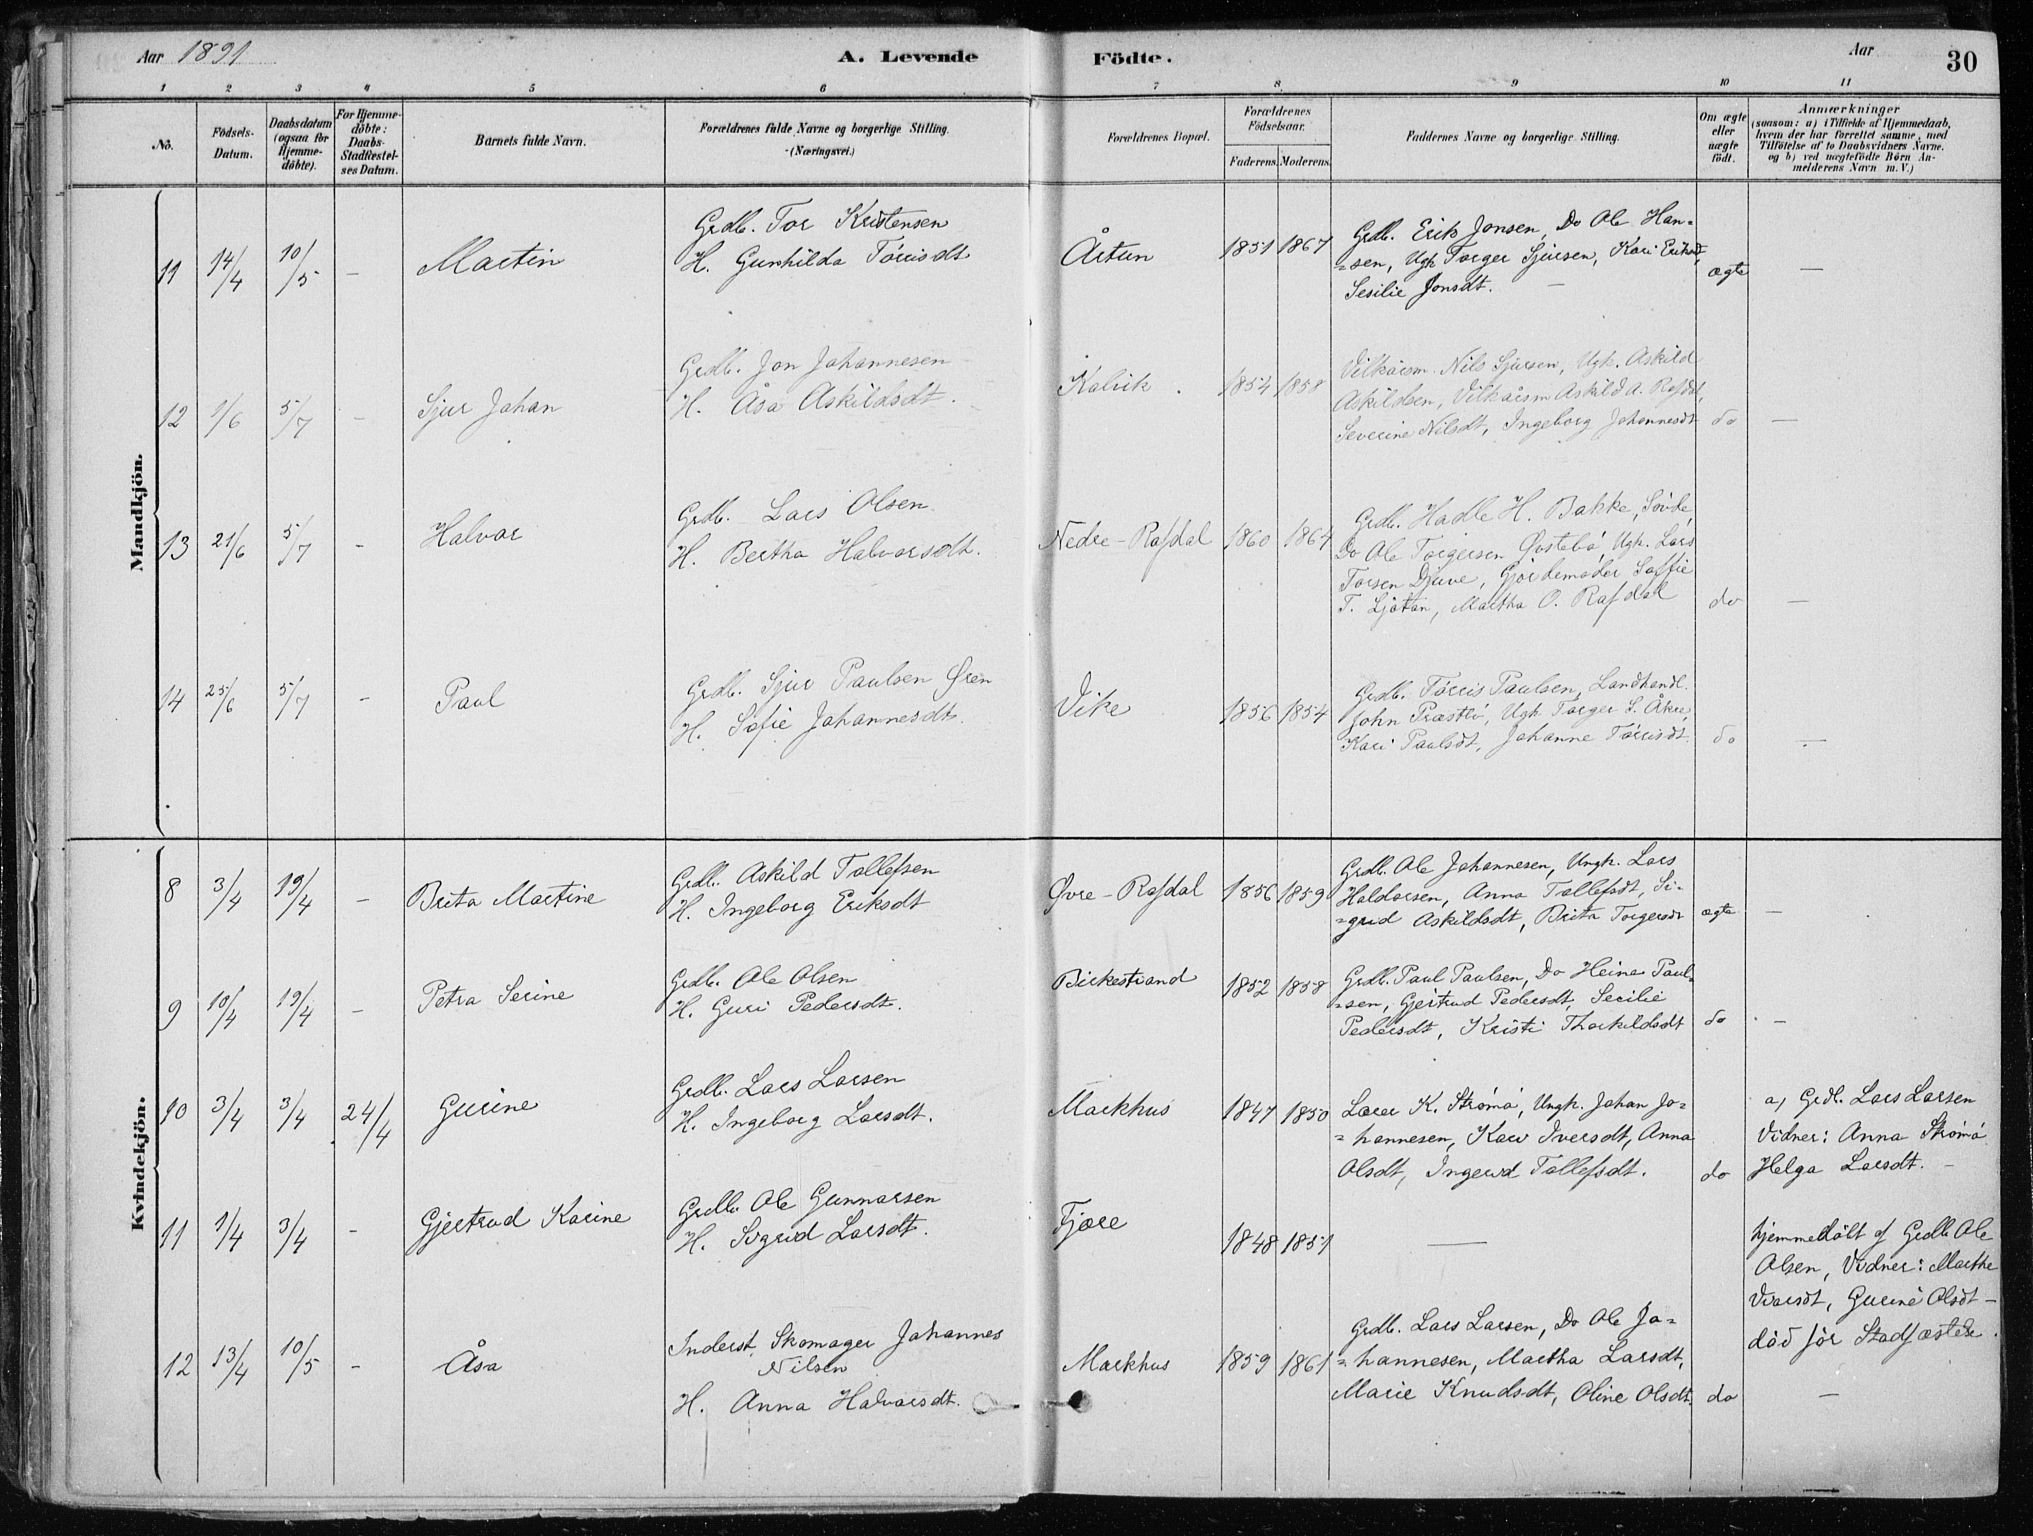 Aar 1891
A. Levende
Födte.
Aar
30
1 2 3 4 5 6 7 8 9 10 11
No.
Födsels-
Datum.
Daabsdatum
(ogsaa för
Hjemme-
döbte).
For Hjemme-
döbte:
Daabs-
Stadfæstel-
ses Datum.
Barnets fulde Navn.
Forældrenes fulde Navne og borgerlige Stilling.
(Næringsvei.)
Forældrenes Bopæl.
Forældrenes
Födselsaar.
Faderens. Moderens.
Faddernes Navne og borgerlige Stilling.
Om ægte
eller
uægte
födt.
Anmærkninger
(saasom: a) i Tilfælde af Hjemmedaab,
hvem der har forrettet samme, med
Tilföielse af to Daabsvidners Navne.
og b) ved uægtefödte Börn An-
melderens Navn m.V.)
Mandkjön.
11 14/4 10/5 - Martin
Grdb. Tor Kristensen
H. Gunhilda Tórrisdt
Årtun 1851 1867
Grdb. Erik Jonsen, Do Ole Han=
=sen, Ugk Torger Sjursen, Kari Eriksdt,
Sesilie Jonsdt. -
ægte -
12 1/6 5/7 - Sjur Johan
Grdb. Jon Johannesen
H. Åsa Askildsdt.
Kalvik. 1854 1858
Vilkårsm. Nils Sjursen, Ugk. Askild
Askildsen, Vilkårsm Askild A. Rafdal,
Severine Nilsdt, Ingeborg Johannesdt
do -
13 21/6 5/7 - Halvor
Grdb. Lars Olsen
H. Bertha Halvorsdt.
Nedre-Rafdal 1860 1864
Grdb. Hadle H. Bakke, Sövde,
Do Ole Torgersen Øvstebö, Ugk. Lars
Torsen Djuve, Gjordemoder Soffie
T. Ljotan, Martha O. Rafdal
do -
14 25/6 5/7 - Paul
Grdb. Sjur Paulsen Øren
H. Sofie Johannesdt.
Vike 1856 1854
Grdb. Tórris Paulsen, Landhandl.
John Præstbö, Ugk Torger S. Åkre,
Kari Paulsdt, Johanne Tórrisdt.
do -
Kvindekjön.
8 3/4 19/4 - Brita Martine
Grdb. Askild Tollefsen
H. Ingeborg Eriksdt
Øvre-Rafdal 1856 1859
Grdb. Ole Johannesen, Ungk. Lars
Haldorsen, Anna Tollefsdt, Si-
=grid Askildsdt, Brita Torgersdt
ægte -
9 10/4 19/4 - Petra Serine
Grdb. Ole Olsen
H. Guri Pedersdt.
Birkestrand 1852 1858
Grdb. Paul Paulsen, Do Heine Paul-
=sen, Gjertrud Pedersdt, Secilie
Pedersdt, Kristi Thorkildsdt
do -
10 3/4 3/4 24/4 Gurine
Grdb. Lars Larsen
H. Ingeborg Larsdt.
Markhus 1847 1850
Lærer K. Strømö, Ungk. Johan Jo=
=hannesen, Kari Iversdt, Anna
Olsdt, Ingerid Tollefsdt.
do
a, Grdb. Lars Larsen
Vidner: Anna Strømö
Helga Larsdt. -
11 1/4 3/4 - Gjertrud Karine
Grdb. Ole Gunnarsen
H. Sigrid Larsdt.
Fjære 1848 1851
-
hjemmedöbt af Grdb Ole
Olsen, Vidner: Marthe
Ivarsdt, Gurine Olsdt -
död för Stadfæstelse.
12 13/4 10/5 - Åsa
Inderst, Skomager Johannes
Nilsen
H. Anna Halvorsdt.
Markhus 1859 1861
Grdb. Lars Larsen, Do Ole Jo=
=hannesen, Martha Larsdt,
Marie Knudsdt, Oline Olsdt.
do -